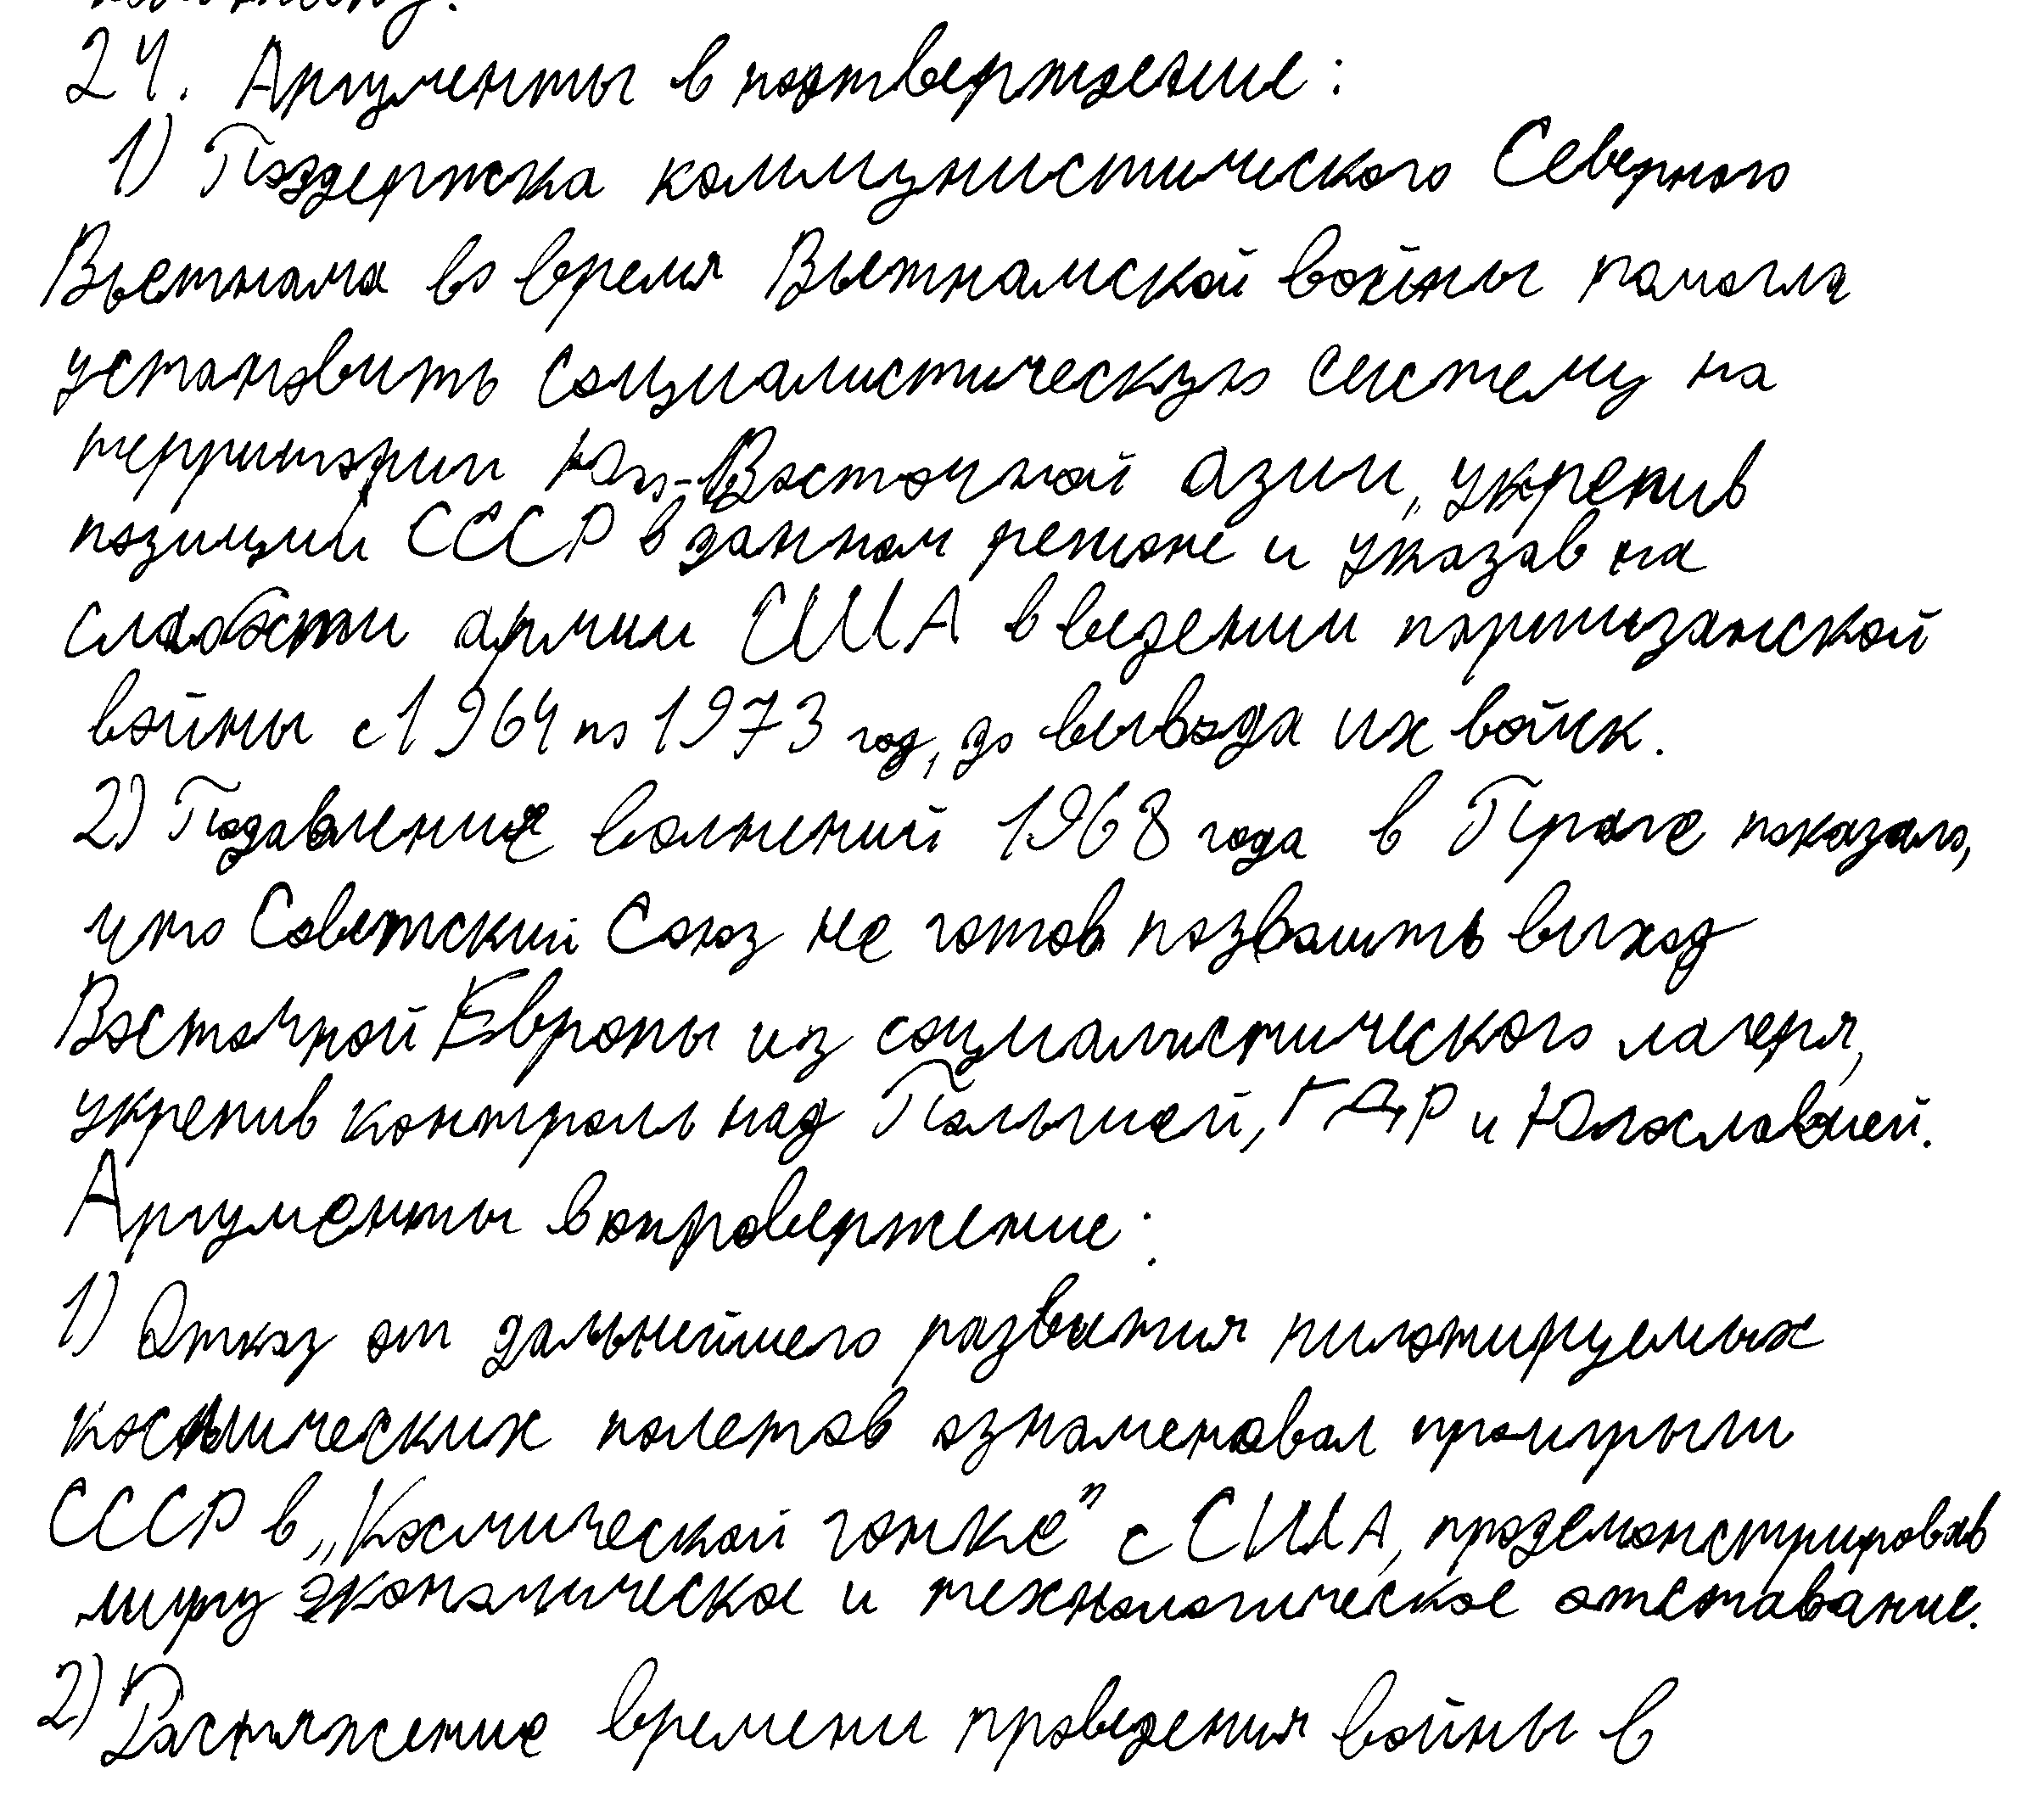 24. Аргументы в подтверждение:
1) Поддержка коммунистического Северного
Вьетнама во время Вьетнамской войны помогла
установить социалистическую систему на
территории Юго-Восточной Азии, укрепив
позиции СССР в данном регионе и указав на
слабости армии США в ведении партизанской
войны с 1964 по 1973 год, до вывода их войск.
2) Подавление волнений 1968 года в Праге показало,
что Советский Союз не готов позволить выход
Восточной Европы из социалистического лагеря,
укрепив контроль над Польшей, ГДР и Югославией.
Аргументы в опровержение:
1) Отказ от дальнейшего развития пилотируемых
космических полетов ознаменовал проигрыш
СССР в „Космической гонке" с США, продемонстрировав
миру экономическое и технологическое отставание.
2) Растяжение времени проведения войны в